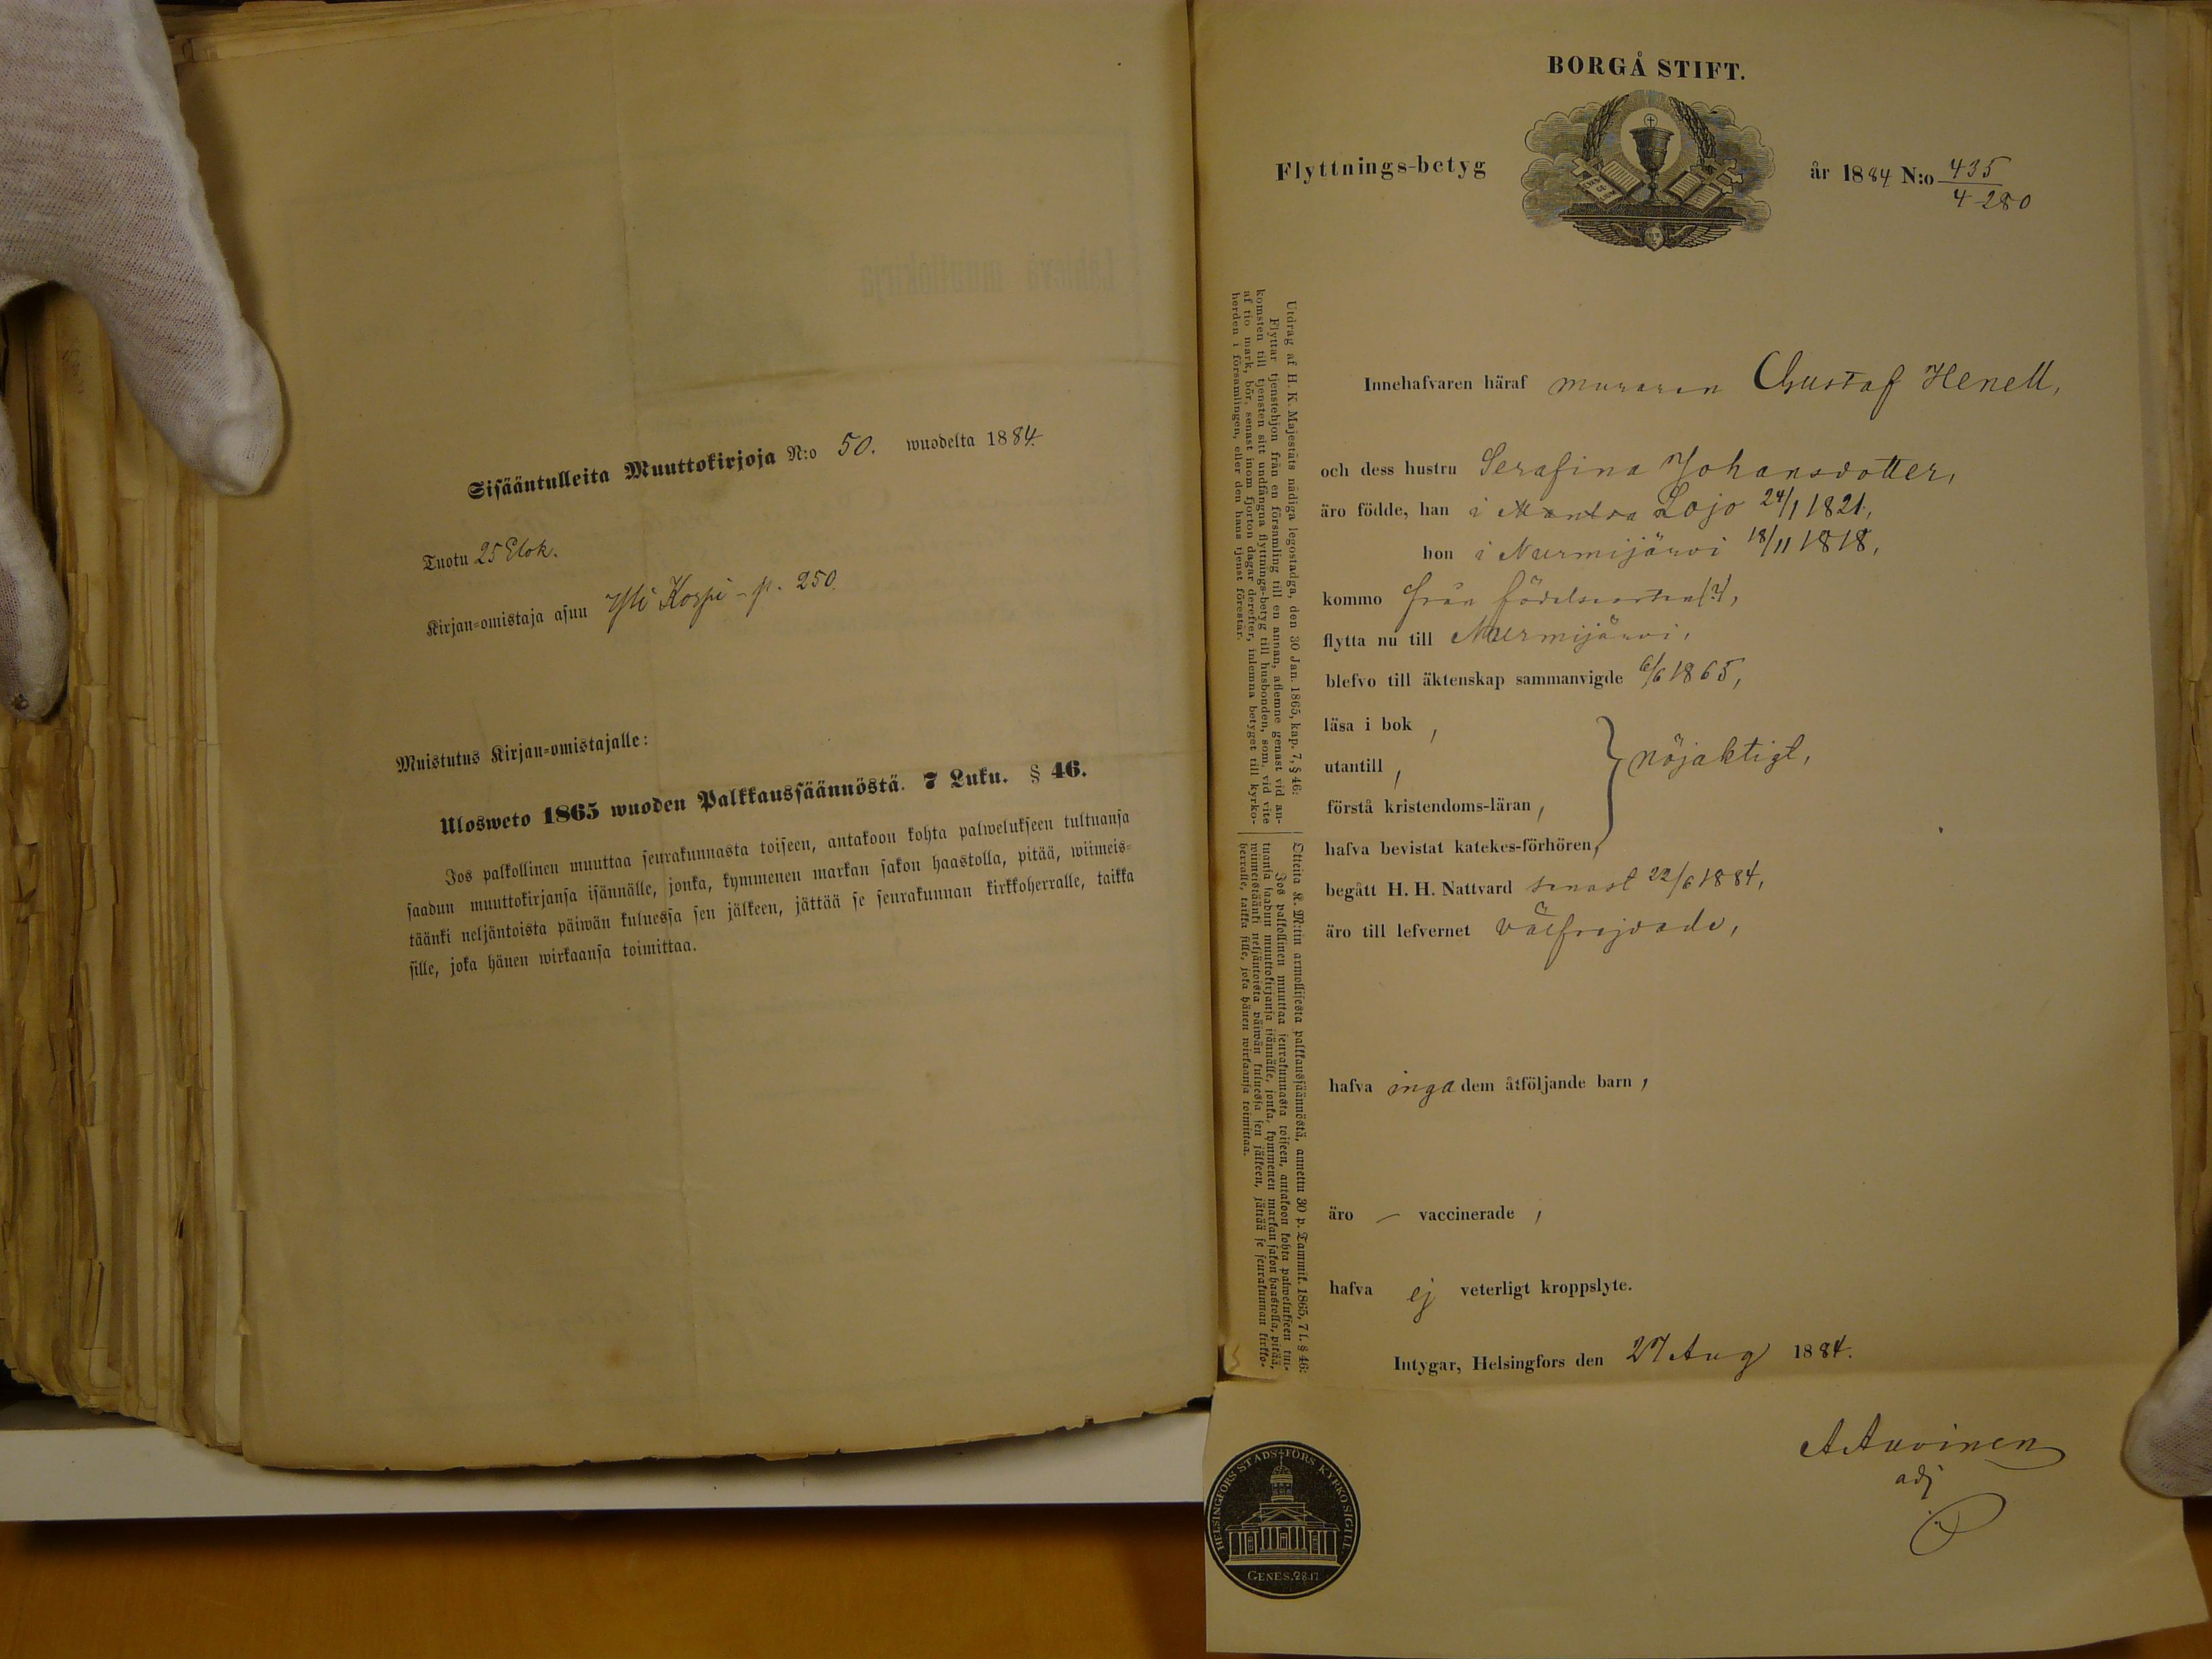 Sisääntulleita Muuttokirjoja N:o 50. wuodelta 1884.
Tuotu 25 Elok.
Kirjan-omistaja asuu Yli Korpi - p. 250.
Muistutus Kirjan-omistajalle:
Ulosweto 1865 wuoden Palkkaussäännöstä. 7 Luku. § 46.
Jos palkollinen muuttaa seurakunnasta toiseen, antakoon kohta palwelukseen tultuansa
saadun muuttokirjansa isännälle, jonka, kymmenen markan sakon haastolla, pitää, wiimeis-
täänki neljäntoista päiwän kuluessa sen jälkeen, jättää se seurakunnan kirkkoherralle, taikka
sille, joka hänen wirkaansa toimittaa.
BORGÅ STIFT.
Flyttnings-betyg
år 1884 N:o 435
4-280
Utdrag af H. K. Majestäts nådiga legostadga, den 30 Jan. 1865, kap. 7, § 46:
Flyttar tjenstehjon från en församling till en annan, aflemne genast vid an-
komsten till tjensten sitt undfångna flyttnings-betyg till husbonden, som, vid vite
af tio mark, bör, senast inom fjorton dagar derefter, inlemna betyget till kyrko-
herden i församlingen, eller den hans tjenst förestår.
Otteita K. M:tin armollisesta palkkaussäännöstä, annettu 30 p. Tammik. 1865, 7 l. § 46:
Jos palkollinen muuttaa seurakunnasta toiseen, antakoon kohta palwelukseen tul-
tuansa saadun muuttokirjansa isännälle, jonka, kymmenen markan sakon haastolla, pitää,
wiimeistäänki neljäntoista päiwän kuluessa sen jälkeen, jättää se seurakunnan kirkko-
herralle, taikka sille, joka hänen wirkaansa toimittaa.
Innehafvaren häraf muraren Gustaf Henell,
och dess hustru Serafina Johansdotter,
äro födde, han i Lojo 24/1 1821,
hon i Nurmijärvi 18/11 1818,
kommo från födelseorten (?),
flytta nu till Nurmijärvi,
blefvo till äktenskap sammanvigde 6/6 1865,
läsa i bok ,
utantill ,
nöjaktigt,
förstå kristendoms-läran ,
hafva bevistat katekes-förhören,
begått H. H. Nattvard senast 22/6 1884,
äro till lefvernet välfrejdade,
hafva inga dem åtföljande barn ,
äro – vaccinerade ,
hafva ej veterligt kroppslyte.
Intygar, Helsingfors den 27 Aug 1884.
A Auvinen
adj
HELSINGFORS STADS FÖRS KYRKO SIGILL
GENES. 28.17